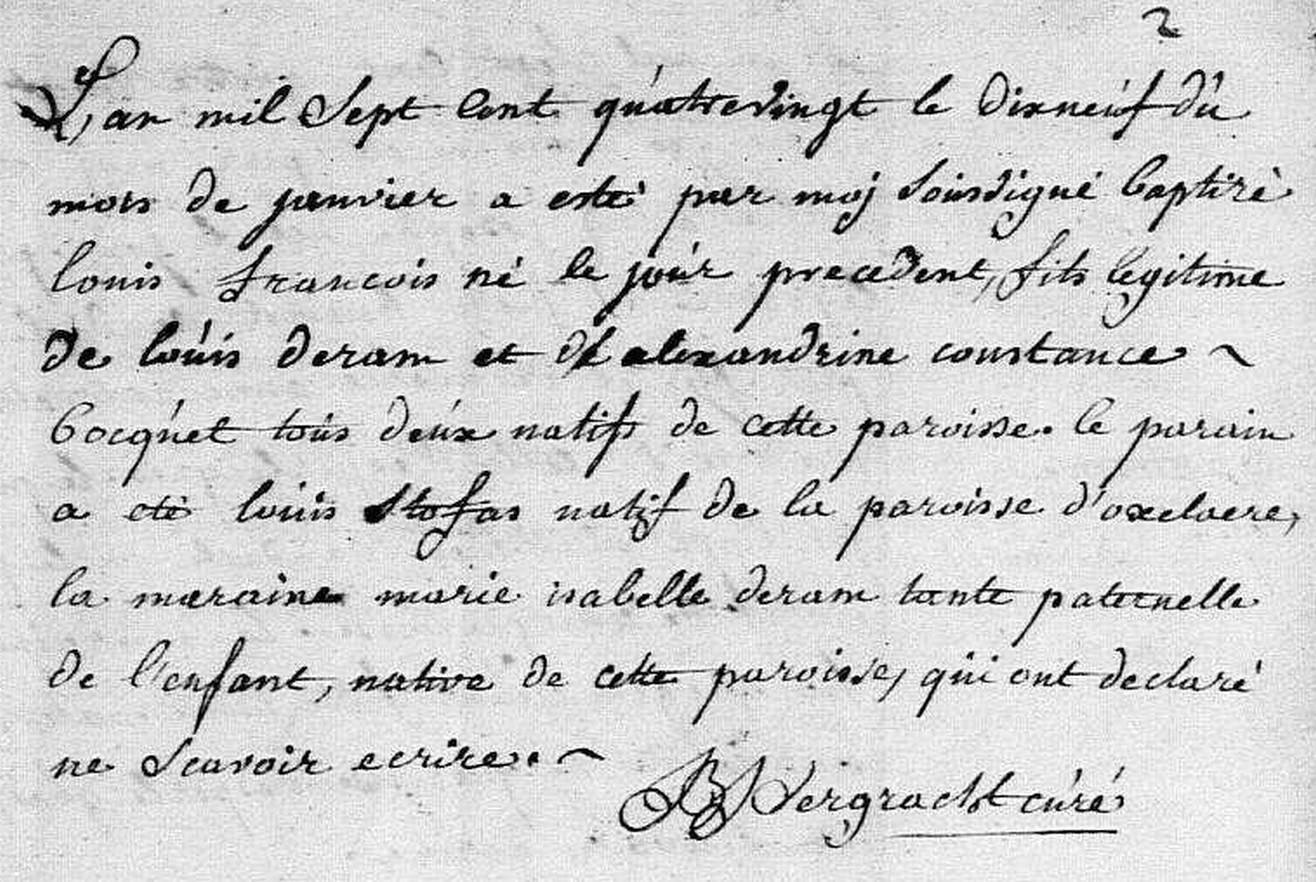 2
L'an mil Sept Cent quatrevingt le Dixneuf du
mois de janvier a esté par moj Soussigné baptizé
louis francois né le jour precedent, fils legitime
de louis deram et d'alexandrine constance ~
bocquet tous deux natifs de cette paroisse. le parain
a eté louis Stofas natif de la paroisse d'oxelaere,
la maraine marie isabelle deram tante paternelle
de l'enfant, native de cette paroisse, qui ont declaré
ne Scavoir ecrire. ~
Vergracht curé